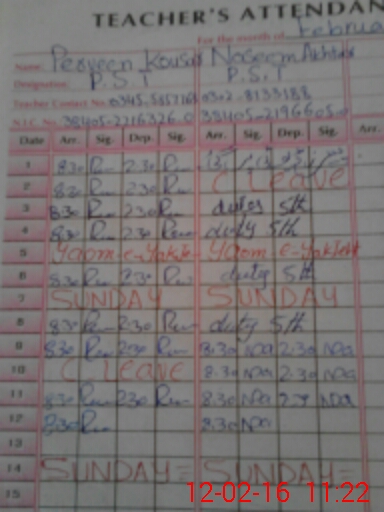 TEACHER'S ATTENDAN
For the month of Februa
Name: Perveen Kousar Naseem Akhtar
Designation: P.S.T P.S.T
Teacher Contact No. 0345. 0302-8133188
N.I.C. No. 38405-2216326-0 38405-2196605-0
Date Arr. Sig. Dep. Sig. Arr. Sig. Dep. Sig. Arr.
1 8.30 2.30
2 8.30 2.30 C Leave
3 8.30 2.30 duty 5th
4 8.30 2.30 duty 5th
5 Yaom-e-Yakjehti Yaom-e-Yakjehti
6 8.30 2.30 duty 5th
7 SUNDAY SUNDAY
8 8.30 2.30 duty 5th
9 8.30 2.30 8.30 NPa 2.30 NPa
10 C Leave 8.30 NPa 2.30 NPa
11 8.30 2.30 8.30 NPa NPa
12 8.30 8.30 NPa
13
14 SUNDAY = SUNDAY =
15
12-02-16 11:22